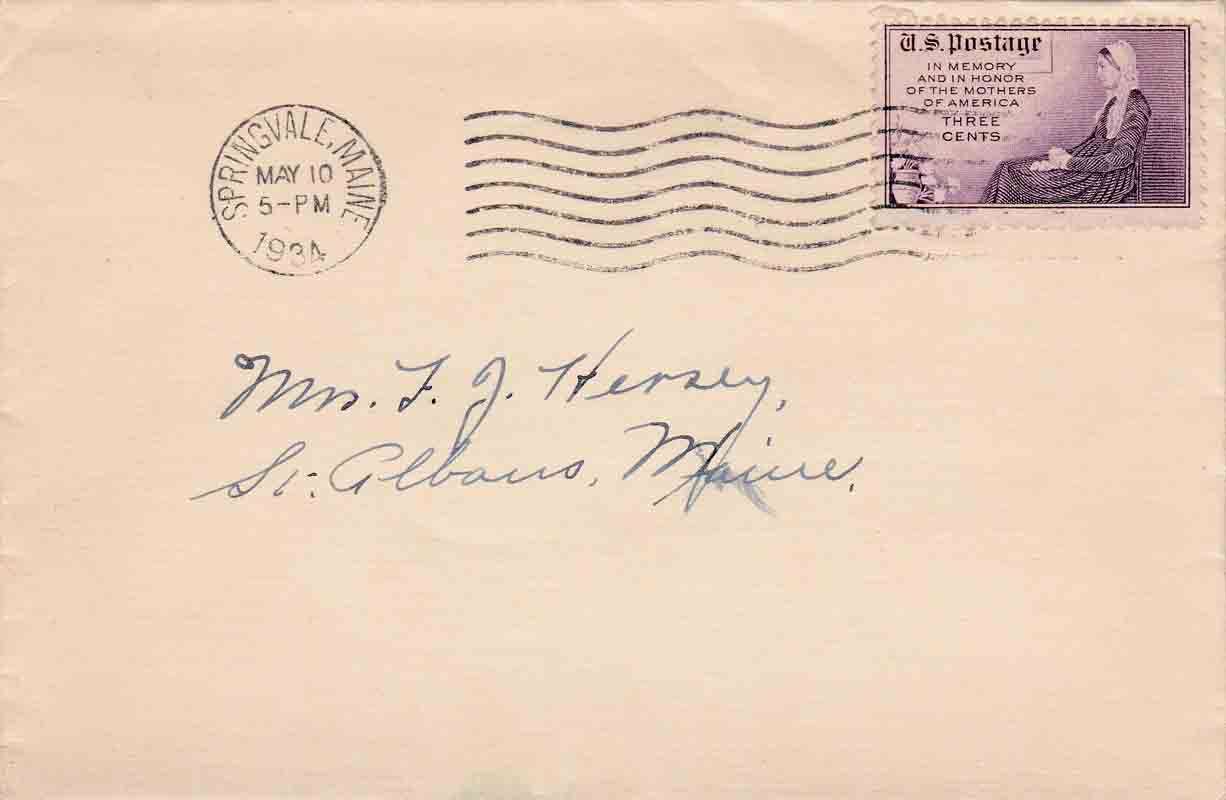 U.S. Postage
IN MEMORY
AND IN HONOR
OF THE MOTHERS
OF AMERICA
THREE
CENTS
SPRINGVALE, MAINE
MAY 10
5-PM
1934
Mrs. F. J. Hersey,
St. Albans, Maine.